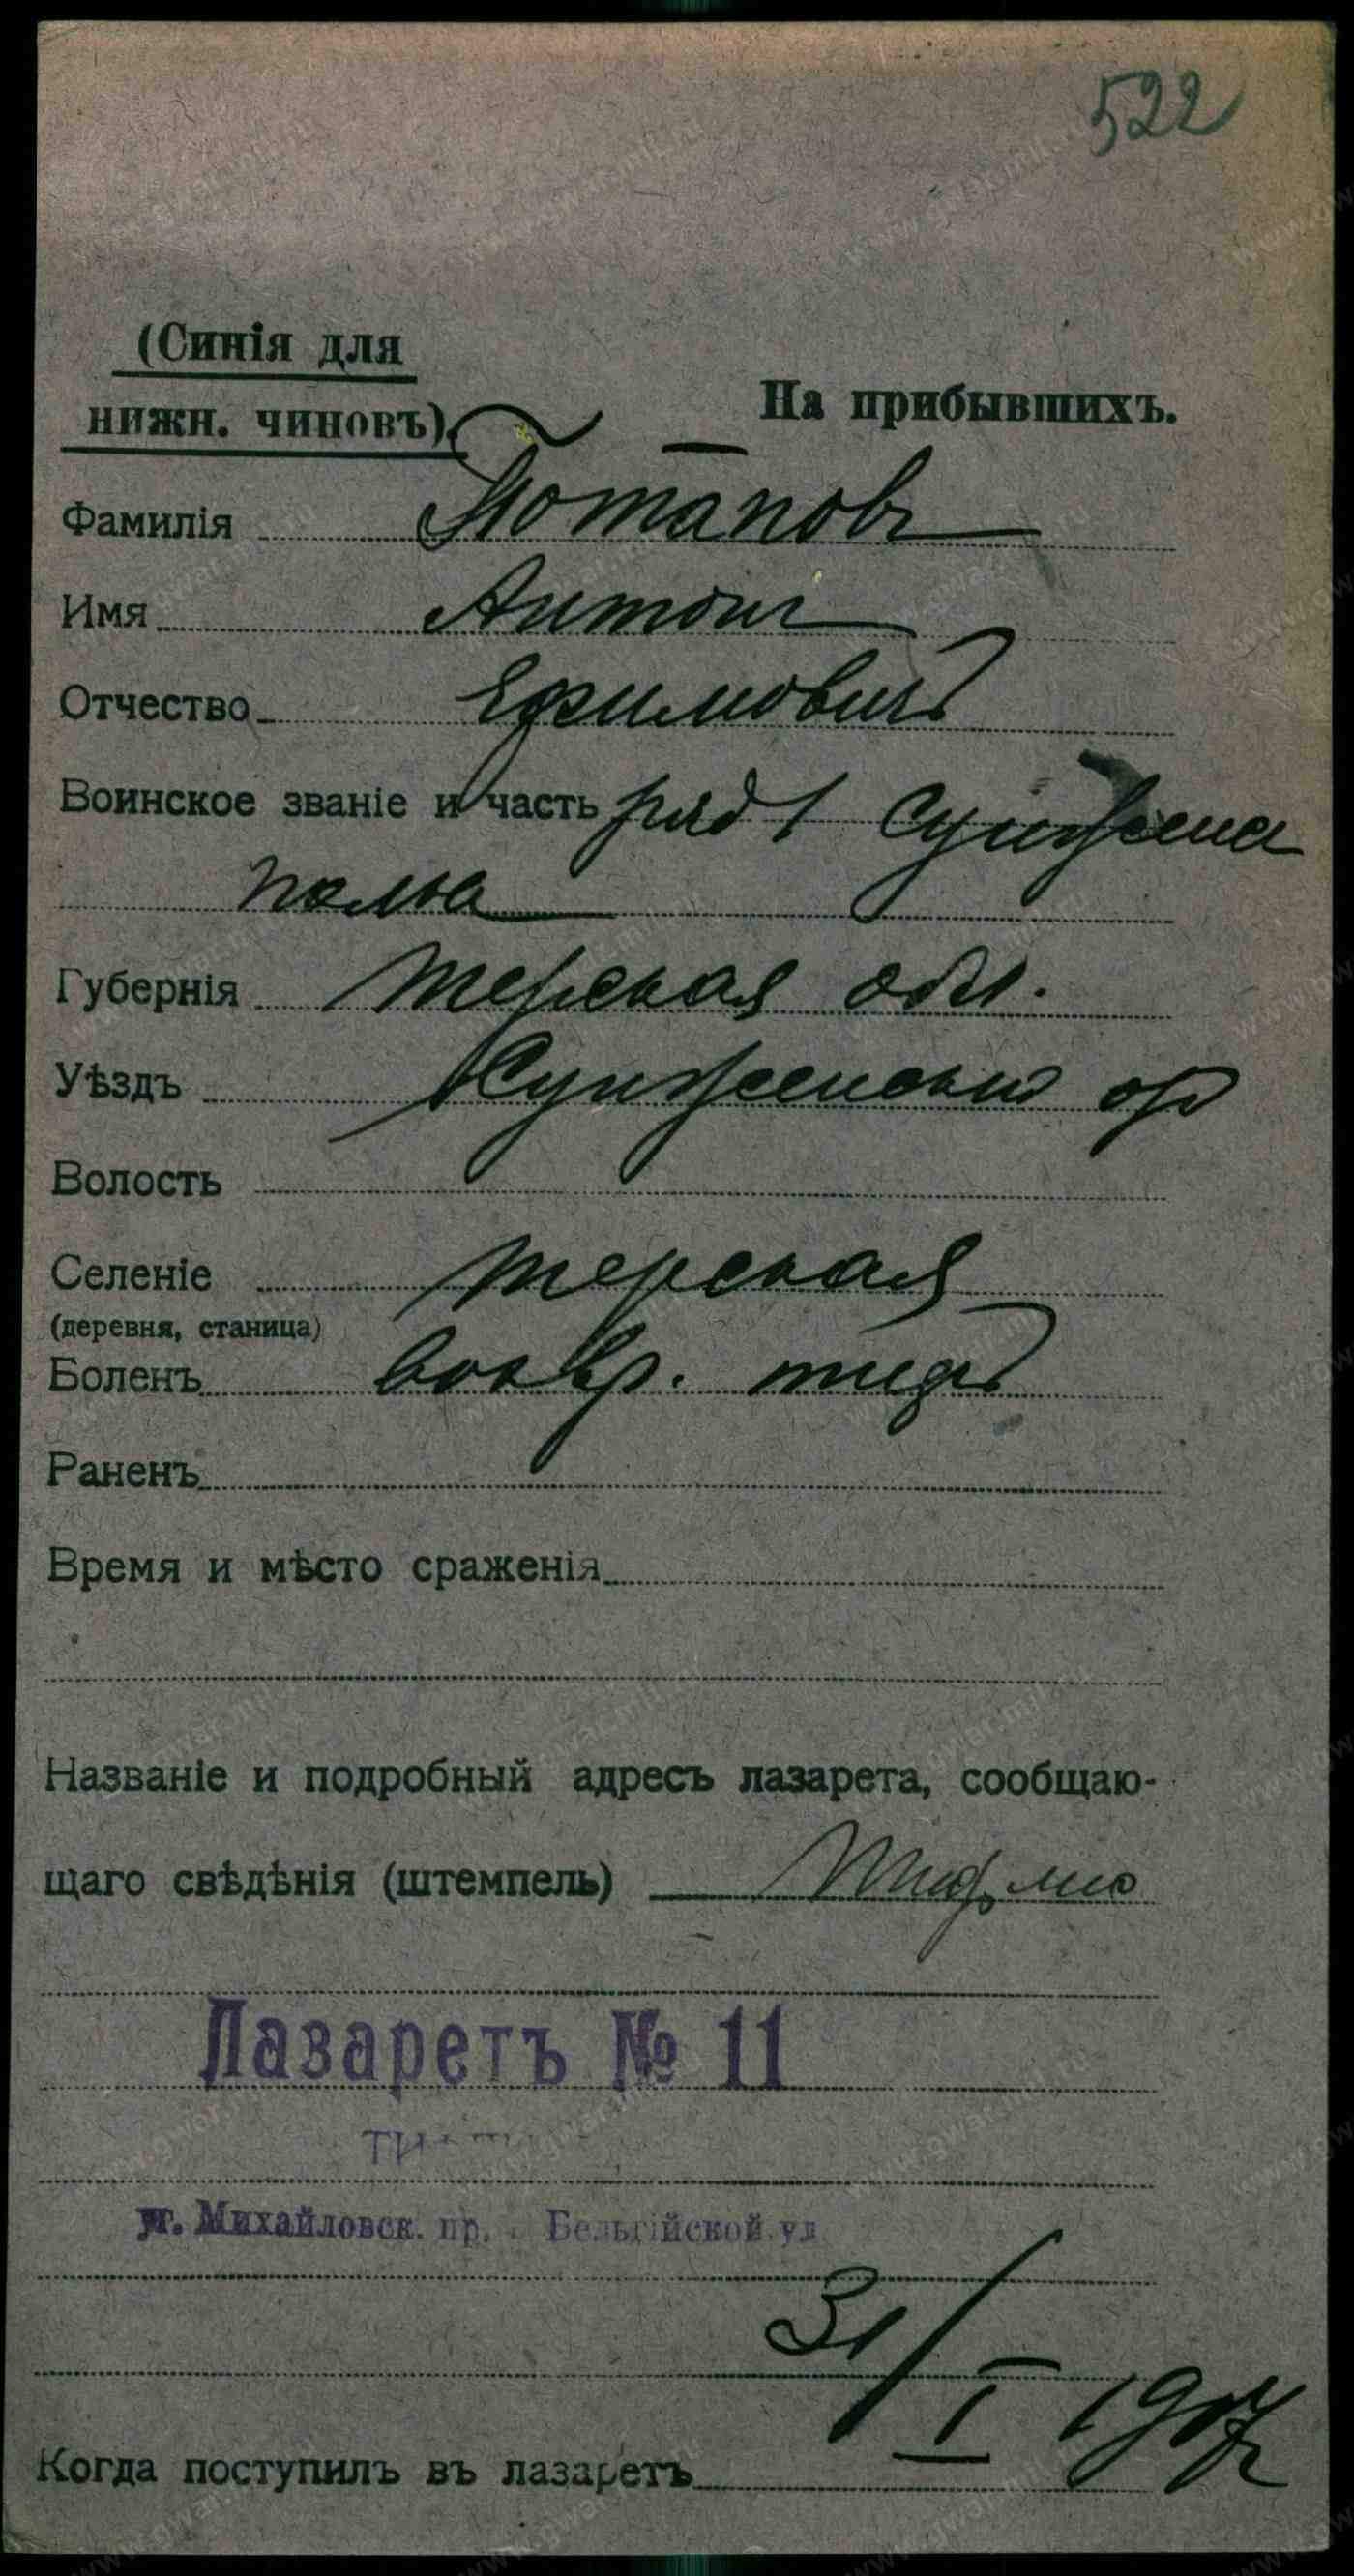 522
(Синія для
нижн. чиновъ)
На прибывшихъ.
Фамилія Потаповъ
Имя Антонъ
Отчество Ефимовичъ
Воинское званіе и часть ряд 1 Сунжена
полка
Губернія Терская обл.
Уѣздъ Сунженскій
Волость
Селеніе Терская
(деревня, станица)
Боленъ возвр. тифъ
Раненъ
Время и мѣсто сраженія
Названіе и подробный адресъ лазарета, сообщаю-
щаго свѣдѣнія (штемпель) Тифлис
Лазаретъ № 11
уг. Михайловск. пр. Бельгійской ул.
31/I 1917
Когда поступилъ въ лазаретъ